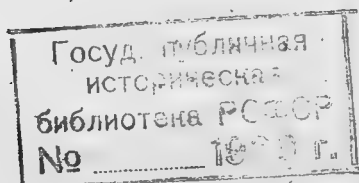 Госуд. публичная
историческая
библиотека РСФСР
№ г.